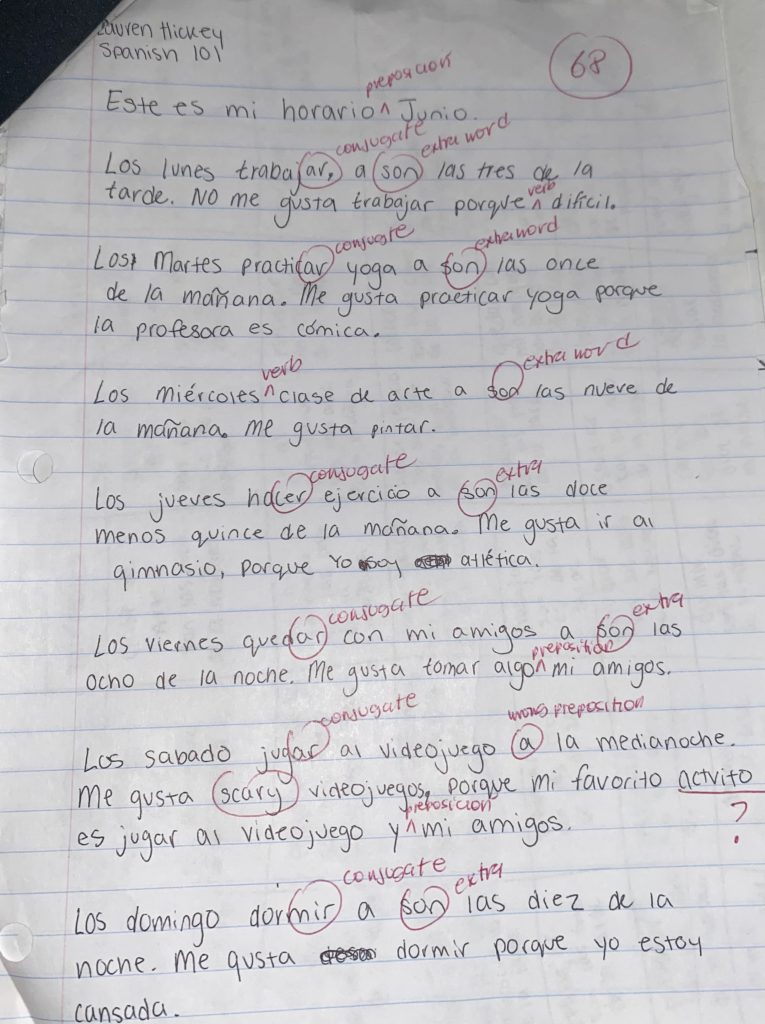 Lauren Hickey
Spanish 101
68
preposicion
Este es mi horario ^ Junio.
conjugate extra word
Los lunes trabajar, a son las tres de la
verb
tarde. No me gusta trabajar porque ^ dificil.
conjugate extra word
Los Martes practicar yoga a son las once
de la mañana. Me gusta practicar yoga porque
la profesora es cómica.
verb extra word
Los miércoles ^ clase de arte a son las nueve de
la mañana. Me gusta pintar.
conjugate extra
Los jueves hacer ejercicio a son las doce
menos quince de la mañana. Me gusta ir al
gimnasio, porque Yo soy atlética.
conjugate extra
Los viernes quedar con mi amigos a son las
preposition
ocho de la noche. Me gusta tomar algo ^ mi amigos.
conjugate wrong preposition
Los sabado jugar al videojuego a la medianoche.
Me gusta scary videojuegos, porque mi favorito actvito
preposicion ?
es jugar al videojuego y ^ mi amigos.
conjugate extra
Los domingo dormir a son las diez de la
noche. Me gusta dormir porque yo estoy
cansada.